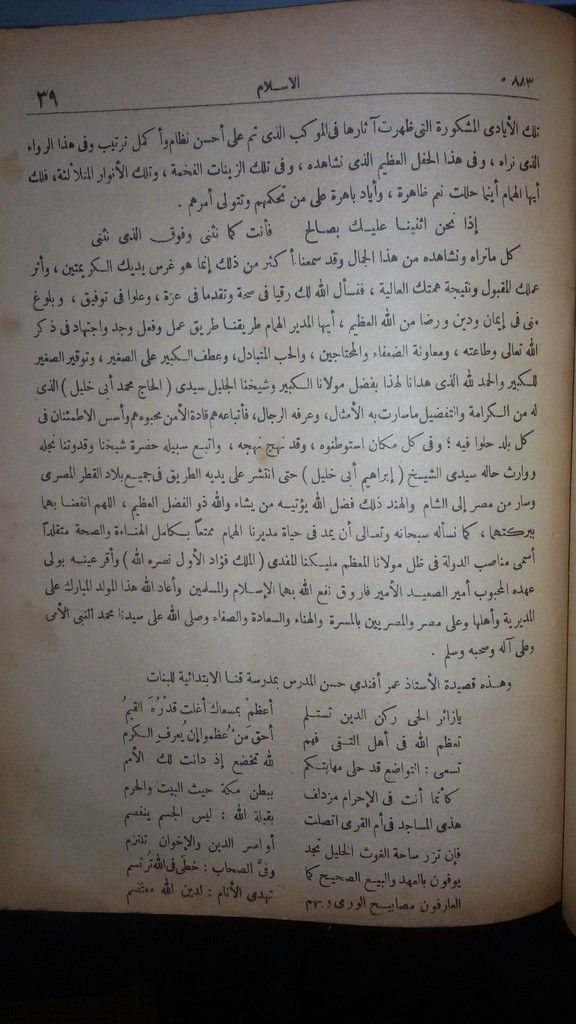 ٨٨٣
الاسلام
٣٩
تلك الأيادى المشكورة التى ظهرت آثارها فى الموكب الذى تم على أحسن نظام وأكمل ترتيب وفى هذا الرواء
الذى نراه ، وفى هذا الحفل العظيم الذى نشاهده ، وفى تلك الزينات الفخمة ، وتلك الأنوار المتلالئة ، فلك
أيها الهمام أينما حللت نعم ظاهرة ، وأياد باهرة على من تحكمهم وتتولى أمرهم .
إذا نحن اثنينا عليك بصالح فأنت كما نثنى وفوق الذى نثنى
كل مانراه ونشاهده من هذا الجمال وقد سمعنا أكثر من ذلك إنما هو غرس يديك الكريمتين ، وأثر
عملك المقبول ونتيجة همتك العالية ، فنسأل الله لك رقيا فى صحة وتقدما فى عزة ، وعلوا فى توفيق ، وبلوغ
منى فى إيمان ودين ورضا من الله العظيم ، أيها المدير الهمام طريقنا طريق عمل وفعل وجد واجتهاد فى ذكر
الله تعالى وطاعته ، ومعاونة الضعفاء والمحتاجين ، والحب المتبادل ، وعطف الكبير على الصغير ، وتوقير الصغير
للكبير والحمد لله الذى هدانا لهذا بفضل مولانا الكبير وشيخنا الجليل سيدى ( الحاج محمد أبى خليل ) الذى
له من الكرامة والتفضيل ماسارت به الأمثال ، وعرفه الرجال ، فأتباعه هم قادة الأمن محبوه هم وأسس الاطمئنان فى
كل بلد حلوا فيه ؛ وفى كل مكان استوطنوه ، وقد نهج نهجه ، واتبع سبيله حضرة شيخنا وقدوتنا نجله
ووارث حاله سيدى الشيخ ( إبراهيم أبى خليل ) حتى انتشر على يديه الطريق فى جميع بلاد القطر المصرى
وسار من مصر إلى الشام والهند ذلك فضل الله يؤتيه من يشاء والله ذو الفضل العظيم ، اللهم انفعنا بهما
ببركتهما ، كما نسأله سبحانه وتعالى أن يمد فى حياة مديرنا الهمام ممتعاً بكامل الهناءة والصحة متقلداً
أسمى مناصب الدولة فى ظل مولانا المعظم مليكنا المفدى ( الملك فؤاد الأول نصره الله ) وأقر عينه بولى
عهده المحبوب أمير الصعيد الأمير فاروق نفع الله بهما الإسلام والمسلمين وأعاد الله هذا المولد المبارك على
المديرية وأهلها وعلى مصر والمصريين بالمسرة والهناء والسعادة والصفاء وصلى الله على سيدنا محمد النبى الأمى
وعلى آله وصحبه وسلم .
وهذه قصيدة الأستاذ عمر أفندي حسن المدرس بمدرسة قنا الابتدائية للبنات
يازائر الحى ركن الدين تستلم أعظم بمسعاك أغلت قدره القيم
تعظم الله فى أهل التقى فهم أحق من عظموا إن يعرف الكرم
تسعى : التواضع قد حلى مهابتكم لله تخضع إذ دانت لك الأمم
كأنما أنت فى الإحرام مزدلف ببطن مكة حيث البيت والحرم
هذى المساجد فى أم القرى اتصلت بقبلة الله : ليس الجسم ينفصم
فإن تزر ساحة الغوث الخليل تجد أواصر الدين والإخوان تلتزم
يوفون بالعهد والبيع الصحيح كما وفىَّ الصحاب : خطى فى الله ترتسم
العارفون مصابيح الورى وبهم تهدى الأنام : لدين الله معتصم